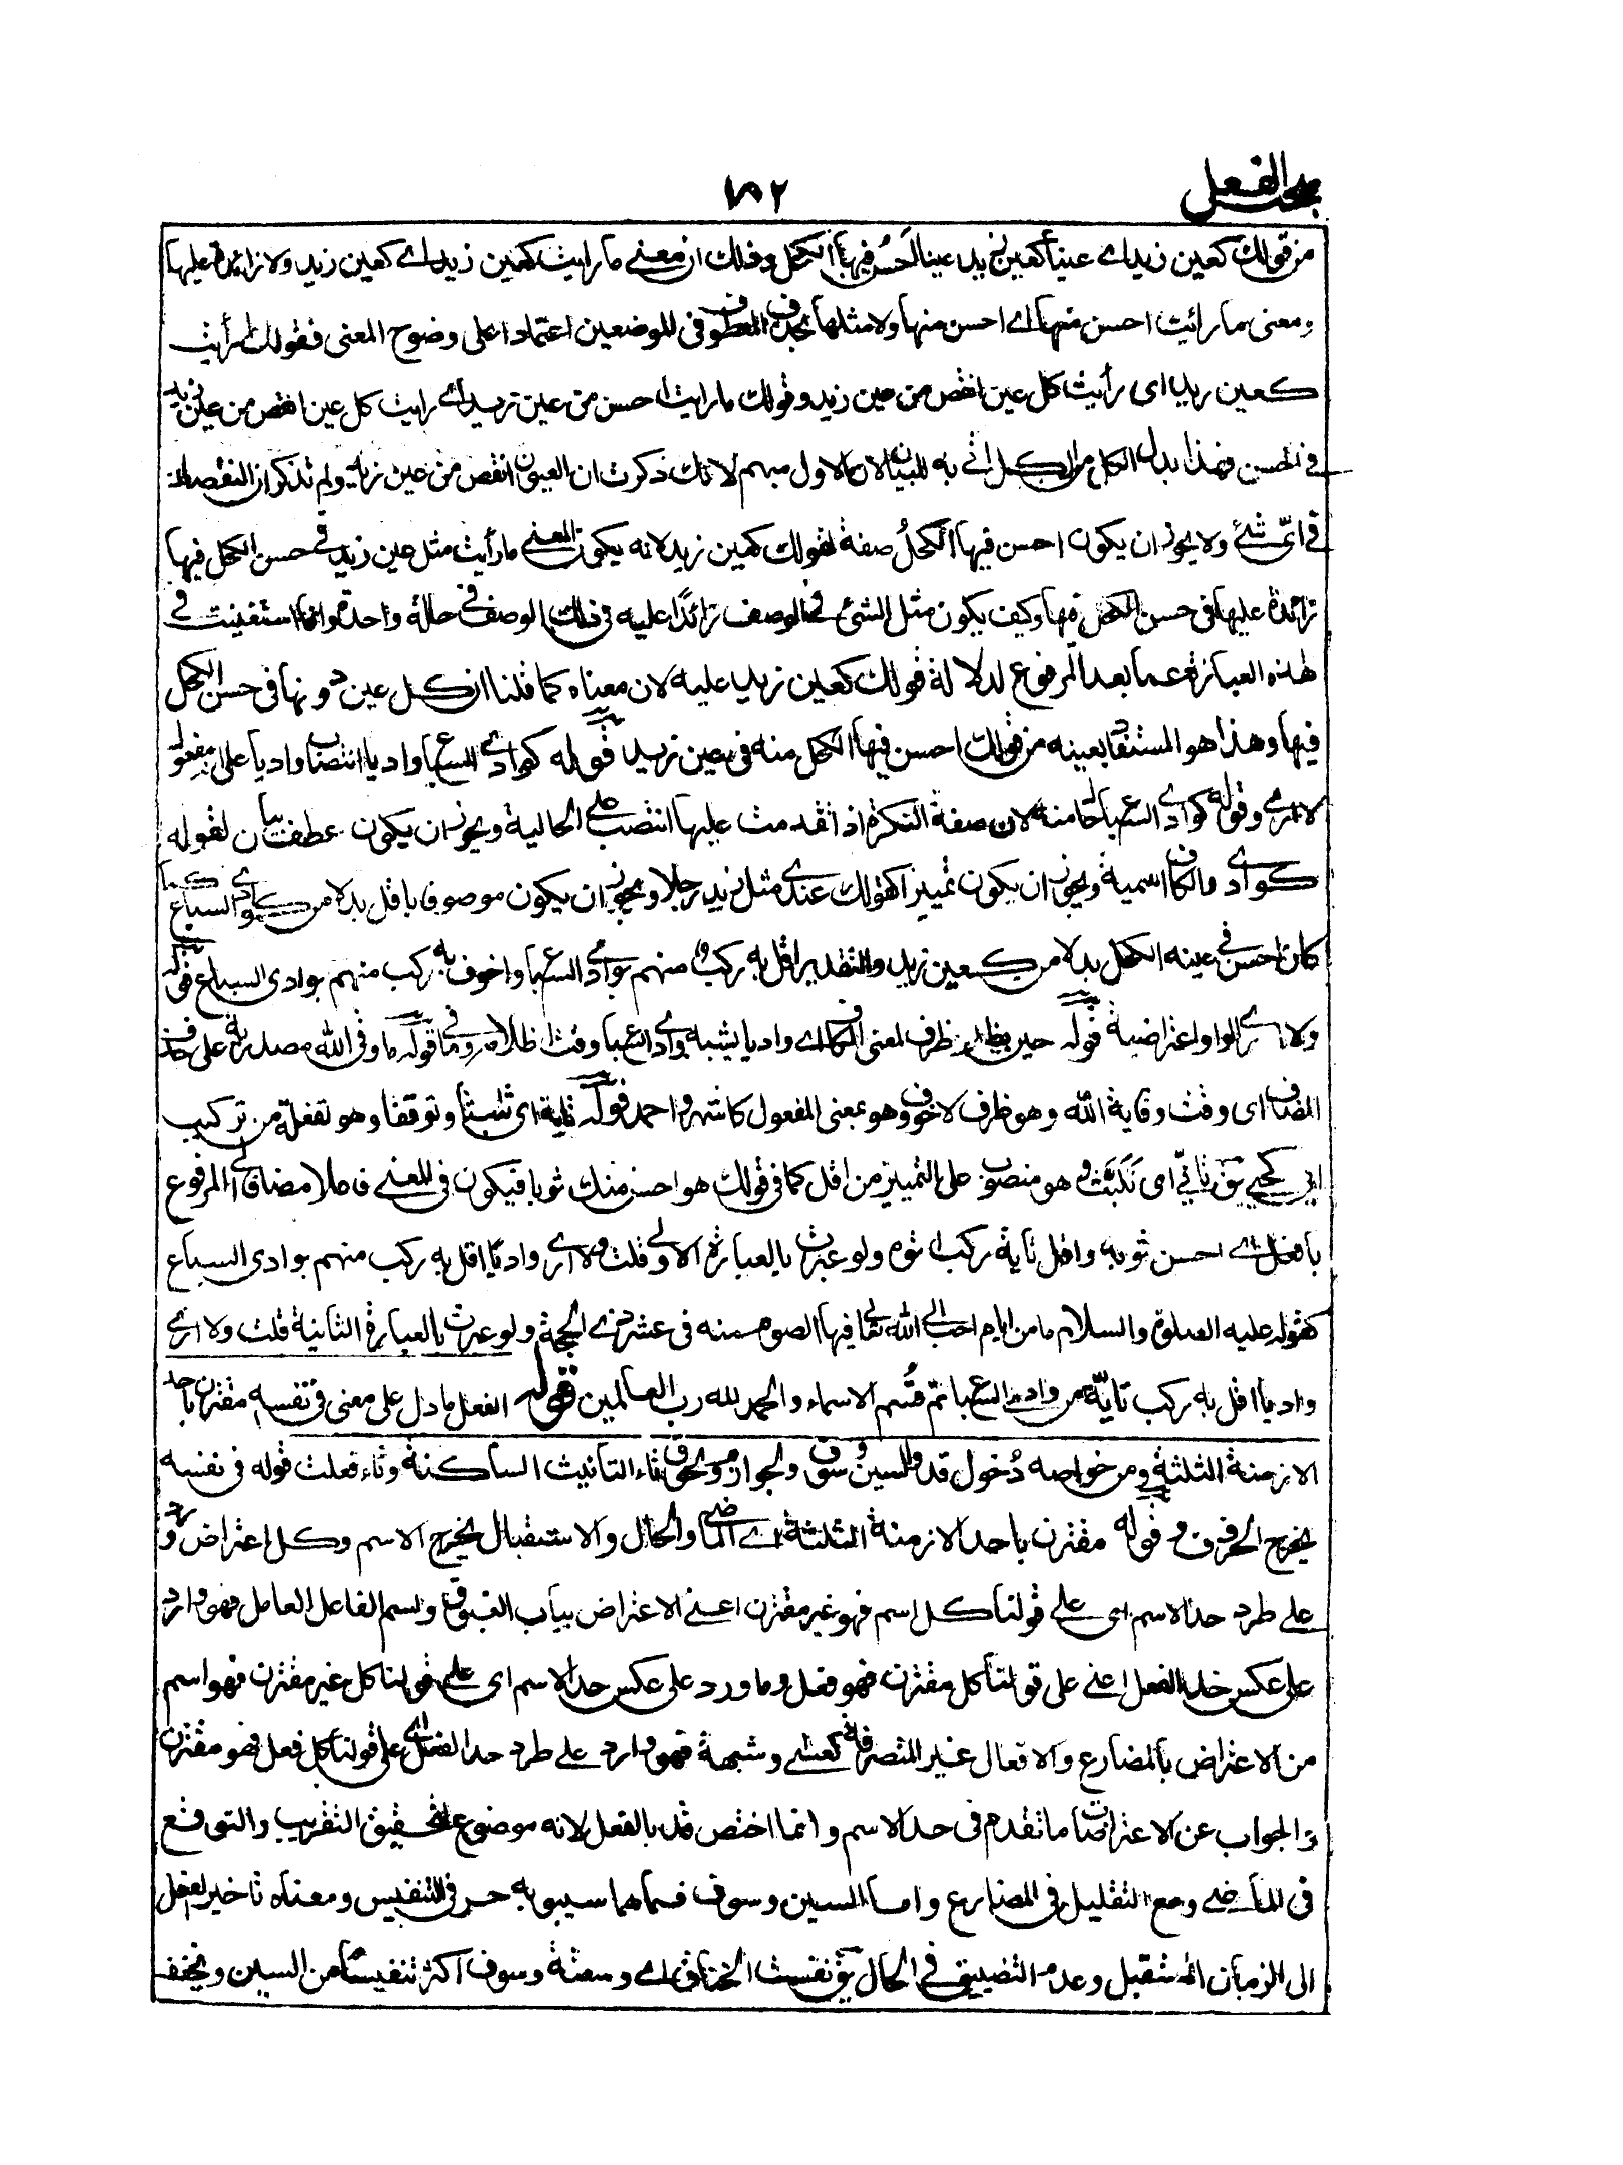 مبحث الفعل
من قولك كعين زيد اى عينا كعين زيد عينا احسن فيها الكحل وذلك ان معنى ما رايت كعين زيد اى كعين زيد ولا زائدة عليها
ومعنى ما رائيت احسن منها اى احسن منها ولا مثلها بحذف المعطوف فى الموضعين اعتمادا على وضوح المعنى فقولك ما رأيت
كعين زيد اى رأيت كل عين انقص من عين زيد وقولك ما رايت احسن من عين زيد اى رايت كل عين انقص من عين زيد
فى الحسن فهذا بدل الكل من الكل اتى به للبيان لان الاول مبهم لانك ذكرت ان العيون انقص من عين زيد ولم تذكر ان النقصان
فى اىّ شئ ولا يجوز ان يكون احسن فيها الكحلُ صفة لقولك كعين زيد لانه يكون المعنى ما رأيت مثل عين زيد فى حسن الكحل فيها
زائدة عليها فى حسن الكحل فيها وكيف يكون مثل الشئ فى الوصف زائدًا عليه فى ذلك الوصف فى حالة واحدة وانما استغنيت فى
هذه العبارة عما بعد المرفوع لدلالة قولك كعين زيد عليه لان معناه كما قلنا ان كل عين دونها فى حسن الكحل
فيها وهذا هو المستفاد بعينه من قولك احسن فيها الكحل منه فى عين زيد قوله كوادى السباع واديا انتصاب واديا على انه مفعول
لا ارى وقوله كوادى السباع حال منه لان صفة النكرة اذا تقدمت عليها انتصب على الحالية ويجوز ان يكون عطف بيان لقوله
كوادى والكاف اسمية ويجوز ان يكون تمييزا كقولك عندى مثل زيد رجلا ويجوز ان يكون موصوفا باقل بدلا من كوادى السباع كما
كان احسن فى عينه الكحل بدلا من كعين زيد والتقدير اقل به ركب منهم بوادى السباع واخوف به ركب منهم بوادى السباع قوله
ولا ارى الواو اعتراضية قوله حين يظلم ظرف لمعنى الكاف اى واديا يشبه وادى السباع وقت اظلامه وما فى قوله ما وقى الله مصدرية على حذف
المضاف اى وقت وقاية الله وهو ظرف لاخوف وهو بمعنى المفعول كاشهر واحمد قوله تاية اى تثبتا وتوقفا وهو تفعلة من تركيب
هو منصوب على التمييز من اقل كما فى قولك هو احسن منك ثوبا فيكون فى المعنى فاعلا مضافا الى المرفوع
بافعل اى احسن ثوبه واقل تاية ركب اتوه ولو عبرت بالعبارة الاولى قلت ولا ارى واديا اقل به ركب منهم بوادى السباع
كقوله عليه الصلوة والسلام ما من ايام احب الى الله تعالى فيها الصوم منه فى عشر ذى الحجة ولو عبرت بالعبارة الثانية قلت ولا ارى
واديا اقل به ركب تايّة من وادى السباع تمّ قسم الاسماء والحمد لله رب العالمين قوله الفعل ما دل على معنى فى نفسه مقترن باحد
الازمنة الثلثة ومن خواصه دُخول قد والسين وسوف والجوازم ولحوق تاء التانيث الساكنة وتاء فعلت قوله فى نفسه
يخرج الحرف وقوله مقترن باحد الازمنة الثلثة اى الماضى والحال والاستقبال يخرج الاسم وكل اعتراض ورد
على طرد حد الاسم اى على قولنا كل اسم فهو غير مقترن اعنى الاعتراض بباب الغبوق واسم الفاعل العامل فهو وارد
على عكس حد الفعل اعنى على قولنا كل مقترن فهو فعل وما ورد على عكس حد الاسم اى على قولنا كل غير مقترن فهو اسم
من الاعتراض بالمضارع والافعال غير المتصرفة كعسى وشبهه فهو وارد على طرد حد الفعل اى على قولنا كل فعل فهو مقترن
والجواب عن الاعتراضات ما تقدم فى حد الاسم وانما اختص قد بالفعل لانه موضوع لتحقيق التقريب والتوقع
فى الماضى ومع التقليل فى المضارع واما السين وسوف فسماهما سيبويه حرفى التنفيس ومعناه تاخير الفعل
الى الزمان المستقبل وعدم التضييق فى الحال يق نفست الخناق اى وسعته وسوف اكثر تنفيسًا من السين ويخفف